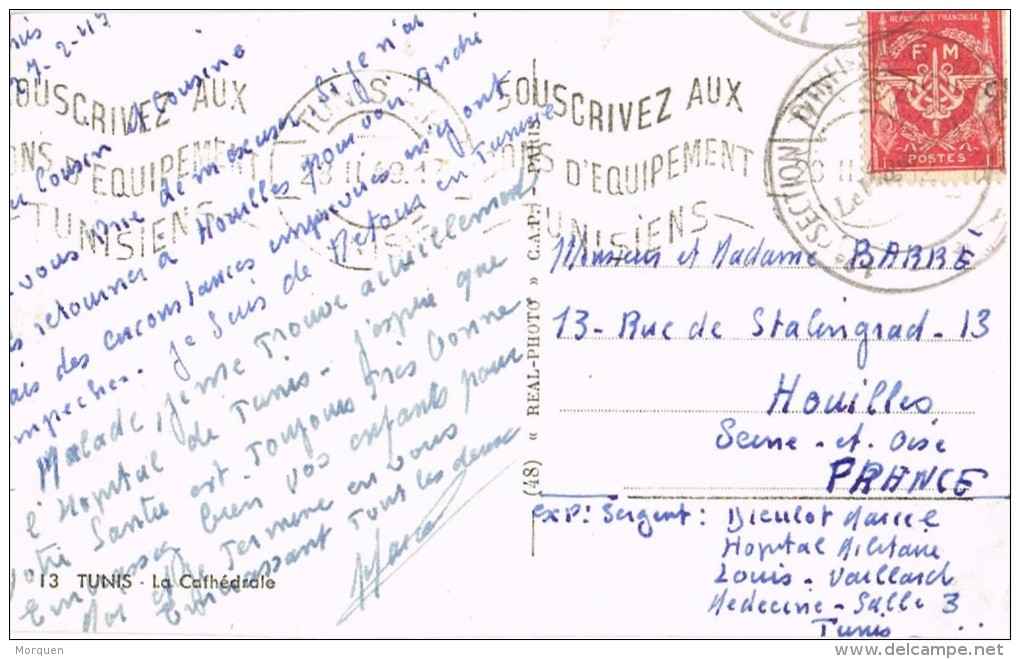 27-2-47
Cousin et Cousine
vous me de m'excuser si je n'ai
retourner à Houilles pour voir André
mais des circonstances imprévues m'y ont
empeches. Je suis de Retour en Tunisie
Malade, je me trouve actuellement
l'Hopital de Tunis. J'espère que
votre Santée est toujours très bonne
Embrassez bien vos enfants pour
Moi et Je Termine en vous
Embrassant tout les deux
Marcel
13 TUNIS - La Cathédrale
SOUSCRIVEZ AUX
BONS D'ÉQUIPEMENT
TUNISIENS
TUNIS
SOUSCRIVEZ AUX
BONS D'EQUIPEMENT
TUNISIENS
(48) « REAL-PHOTO » C.A.P. - PARIS
REPUBLIQUE FRANÇAISE
F M
POSTES
SECTION
Monsieur et Madame BARRÉ
13- Rue de Stalingrad-13
Houilles
Seine-et-Oise
FRANCE
exp: Sergent: Dieulot Marcel
Hopital Militaire
Louis-Vaillard
Medecine-Salle 3
Tunis
Morquen
delcampe.net